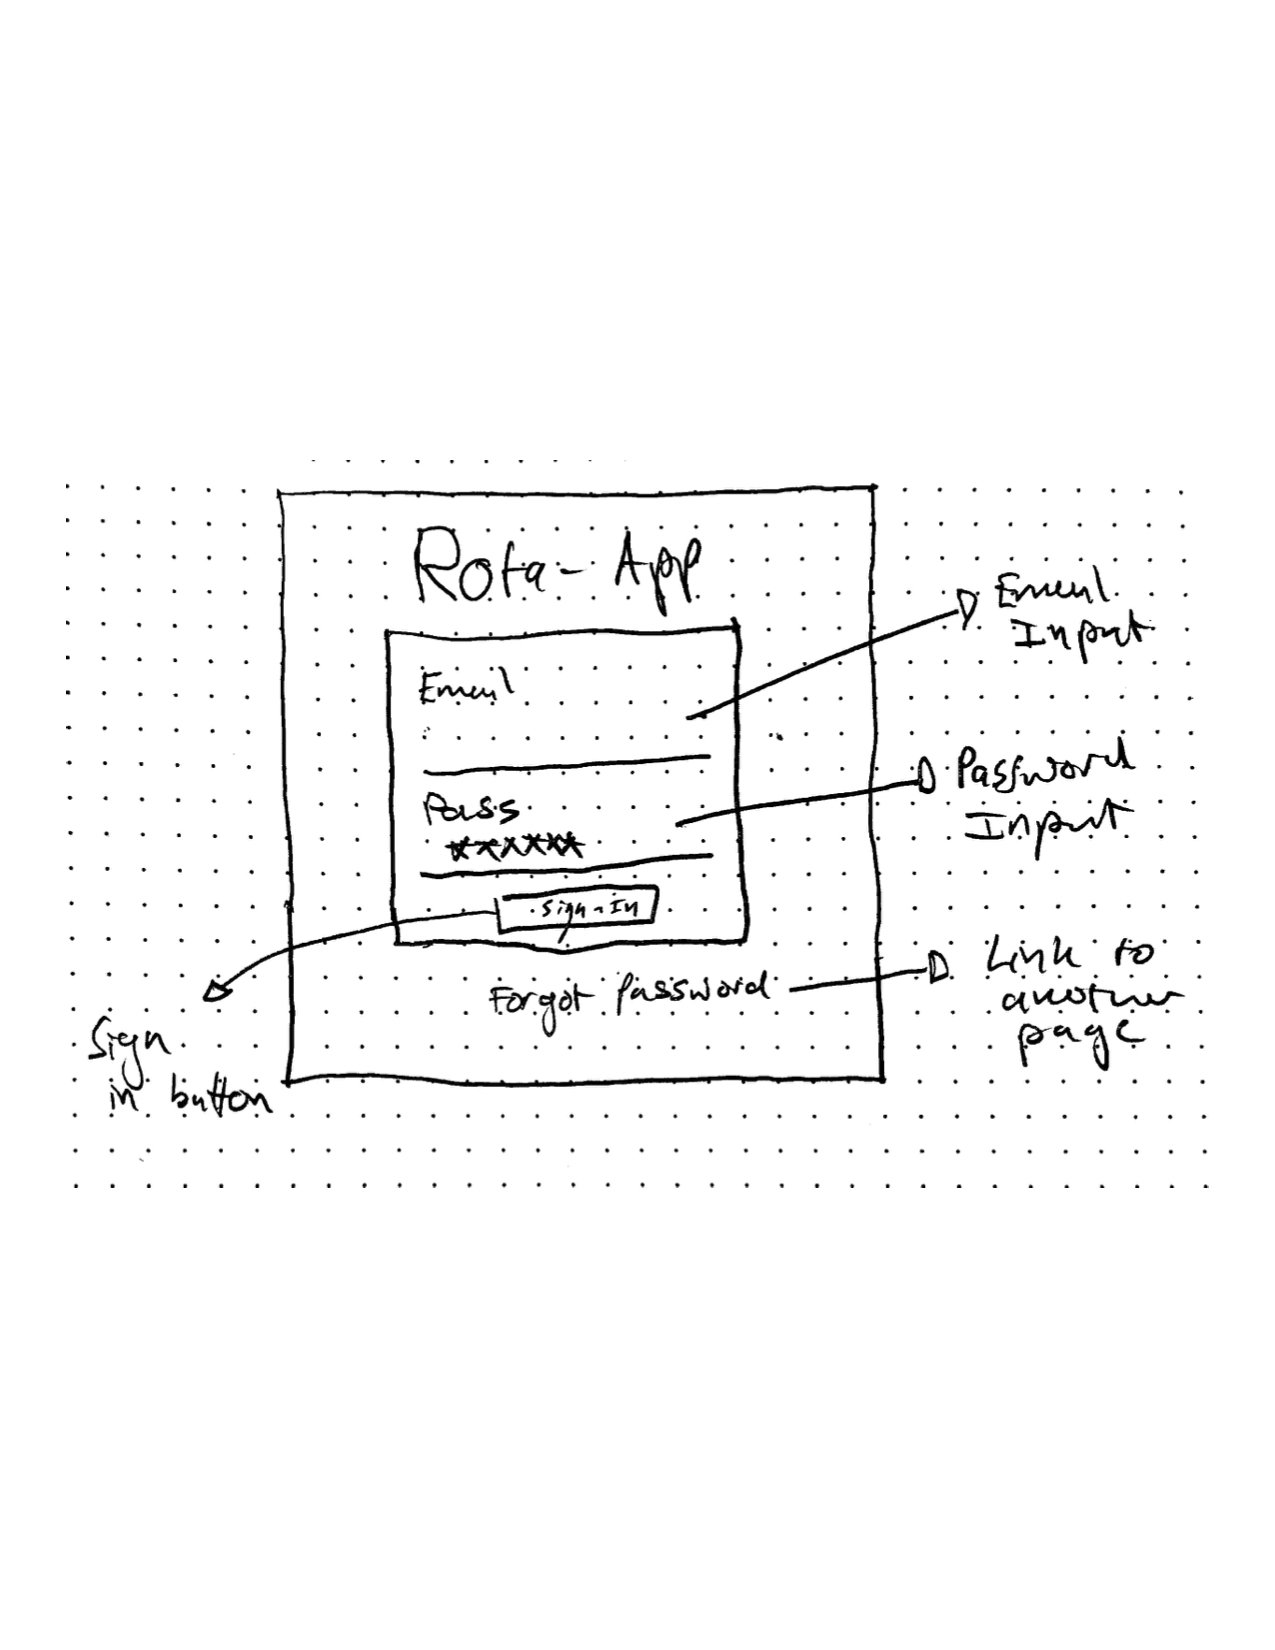 Rota-App
Email
Pass
******
Sign-In
Forgot Password
Email
Input
Password
Input
Link to
another
page
Sign
in button